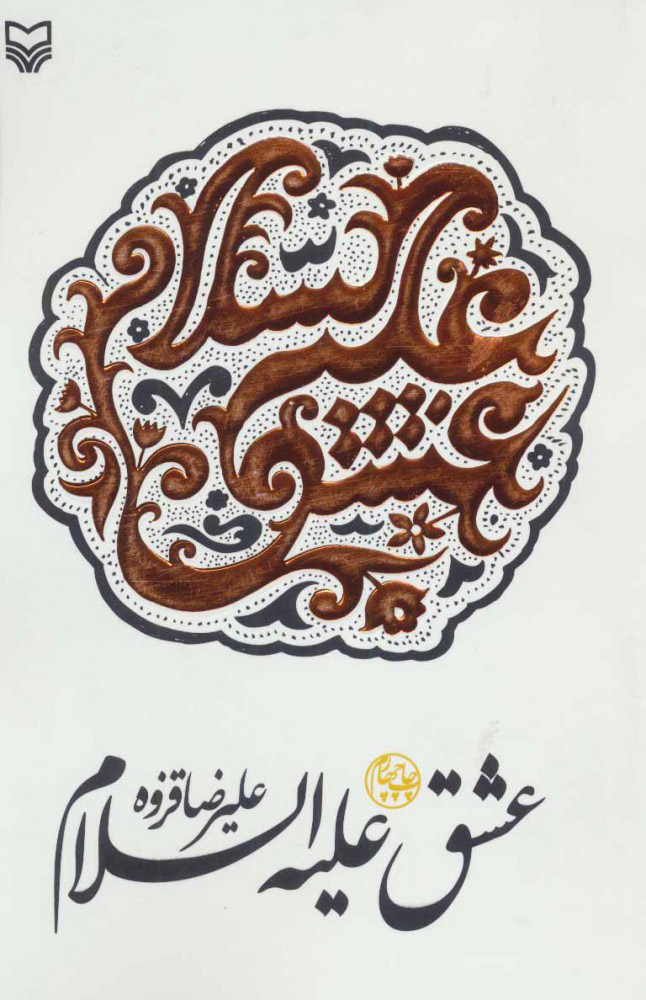 عشق علیه السلام
عشق علیه السلام
علیرضا قزوه
چاپ چهارم